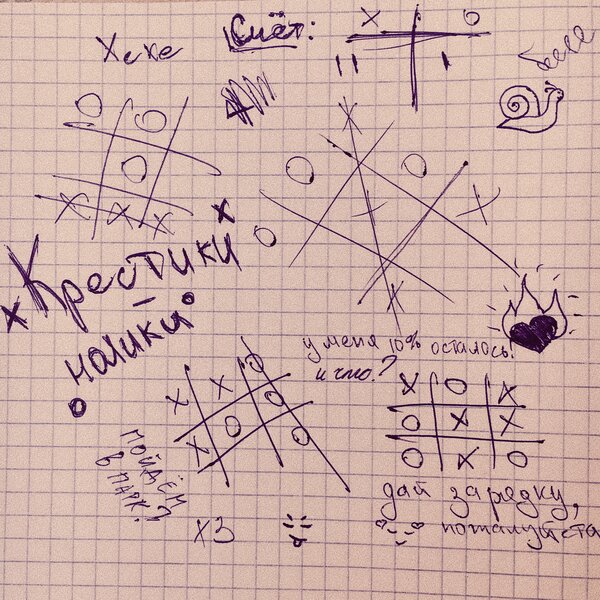 Хехе
Счёт:
X O
II I
Крестики
-
нолики
у меня 10% осталось!
и что?
пойдём
в парк?
хз
дай зарядку,
пожалуйста